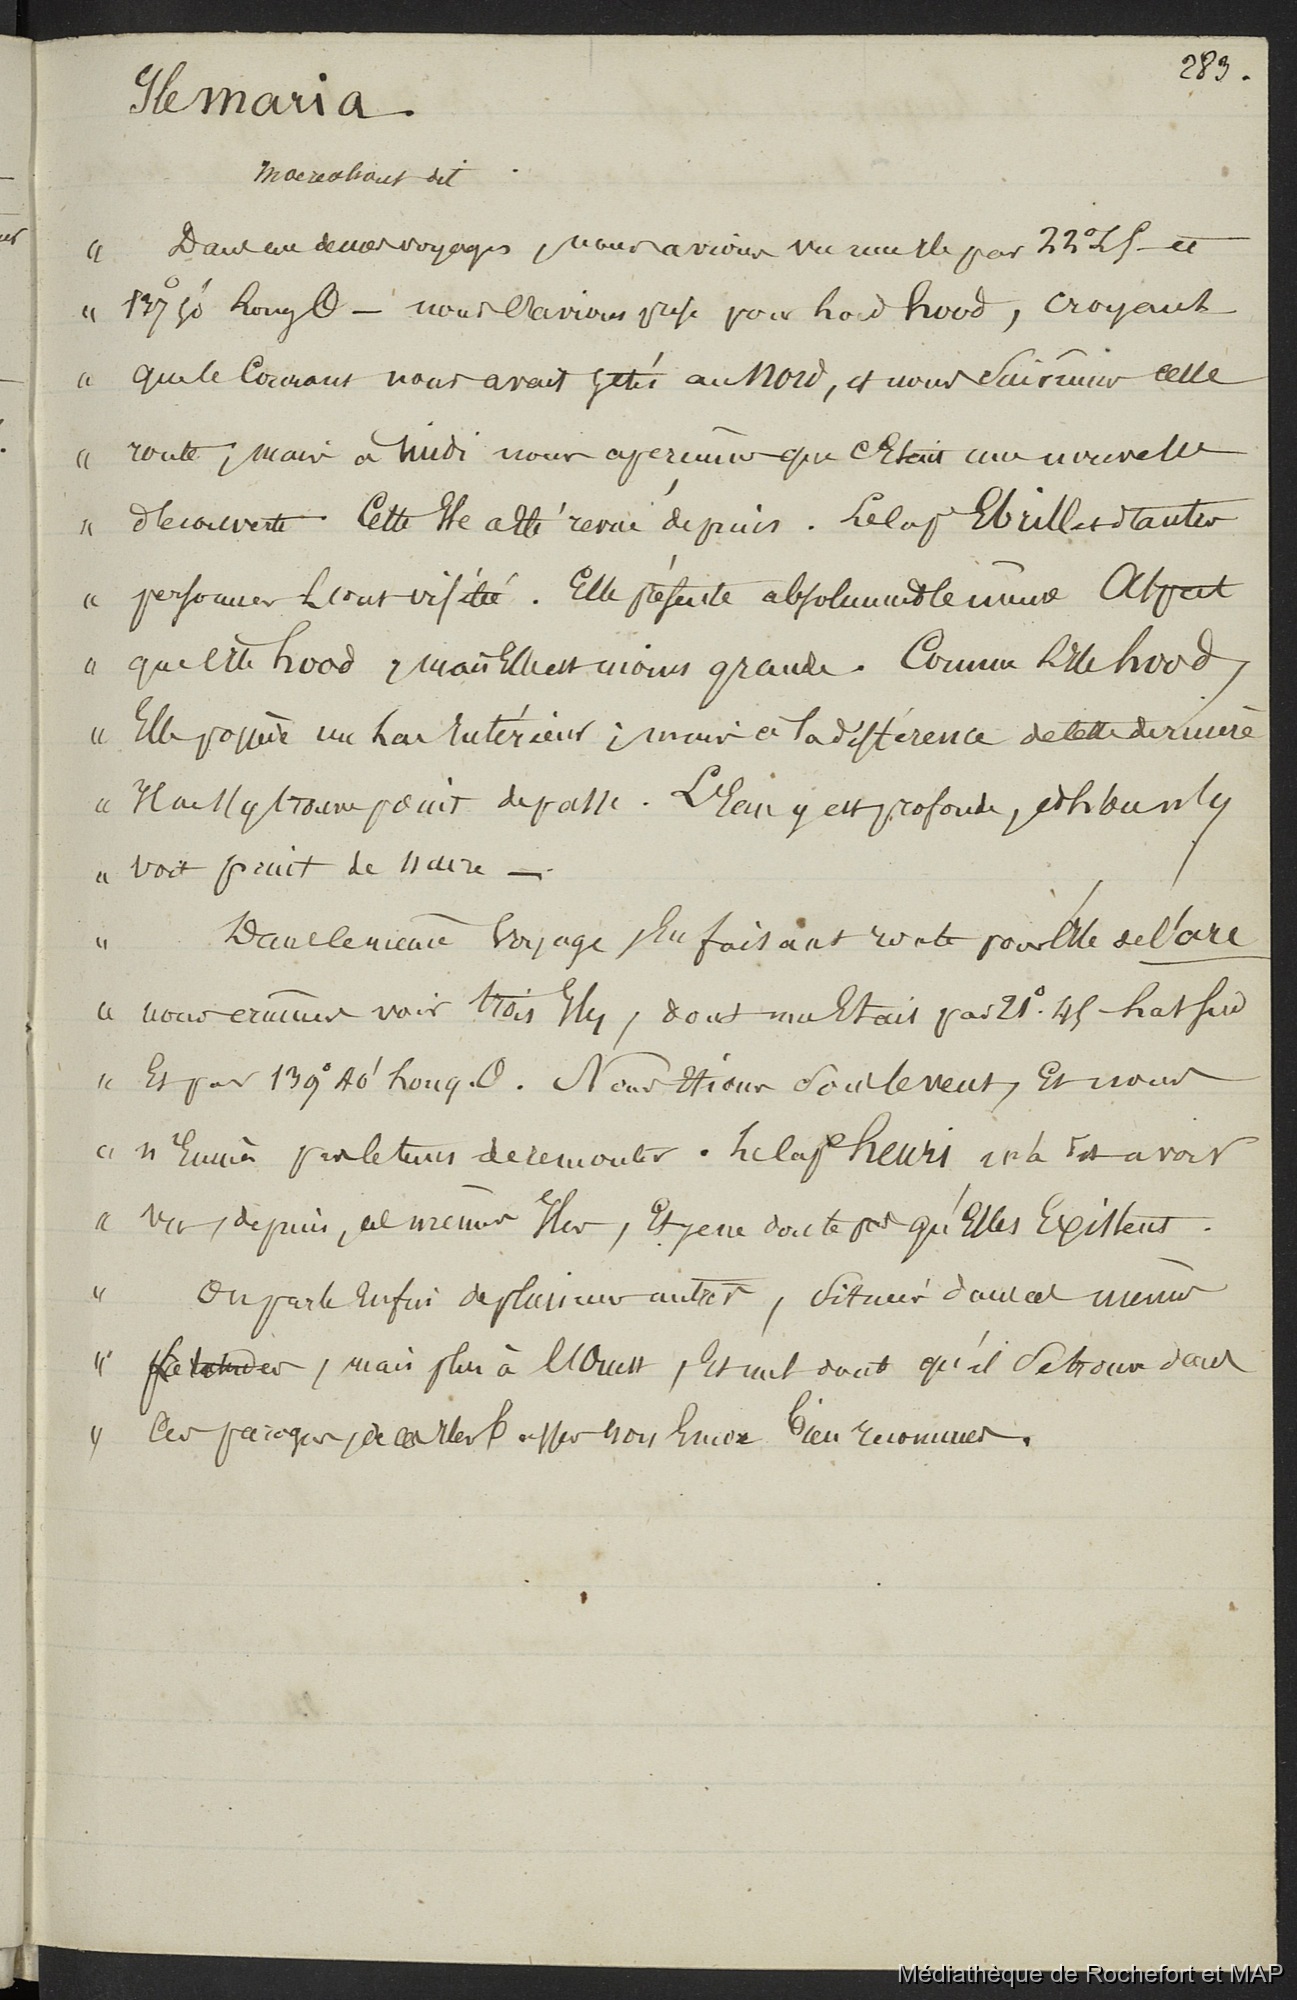 283.
Ile maria.
Moerenhout dit
" Dans un de mes voyages, nous avions vu une Ile par 22° 25 et
" 137° 50' Long O — nous l'avions prise pour Lord hood, croyant
" que le Courant nous avait jetés au Nord, et nous suivîmes cette
" route; mais à midi nous aperçûmes que c'Etait une nouvelle
" découverte. Cette Ile a été revue depuis. Le Cap Ebrill et d'autres
" personnes l'ont visitée. Elle présente absolument le même Aspect
" que l'Ile hood, mais Elle est moins grande. Comme l'Ile hood,
" Elle possède un Lac Intérieur; mais à la différence de cette dernière
" Il ne s'y trouve point de passe. L'Eau y est profonde, et l'on n'y
" voit point de nacre —.
" Dans le même Voyage, En faisant route pour l'Ile de l'arc
" nous crûmes voir trois Iles, dont une Etait par 21°. 45 Lat Sud
" Et par 139° 40' Long. O. Nous Etions sous le vent, Et nous
" n'Eûmes pas le tems de remonter. Le Cap henri m'a dit avoir
" vu, depuis, ces mêmes Iles, Et je ne doute pas qu'Elles Existent.
" On parle Enfin de plusieurs autres, situées dans ces mêmes
" , mais plus à l'Ouest, Et nul doute qu'il se trouve dans
" Ces parages, des Iles non Encore bien reconnues.
Médiathèque de Rochefort et MAP